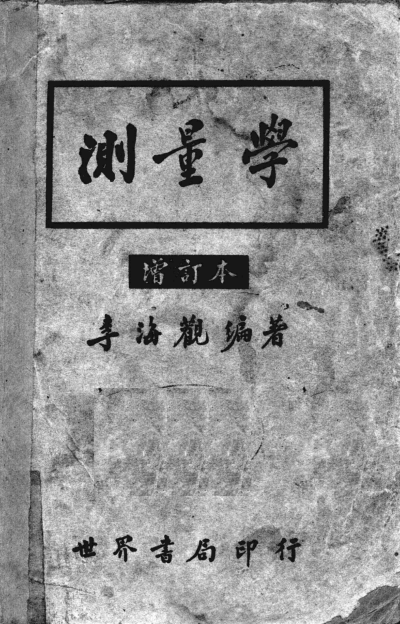 測量學
增訂本
李海觀編著
世界書局印行